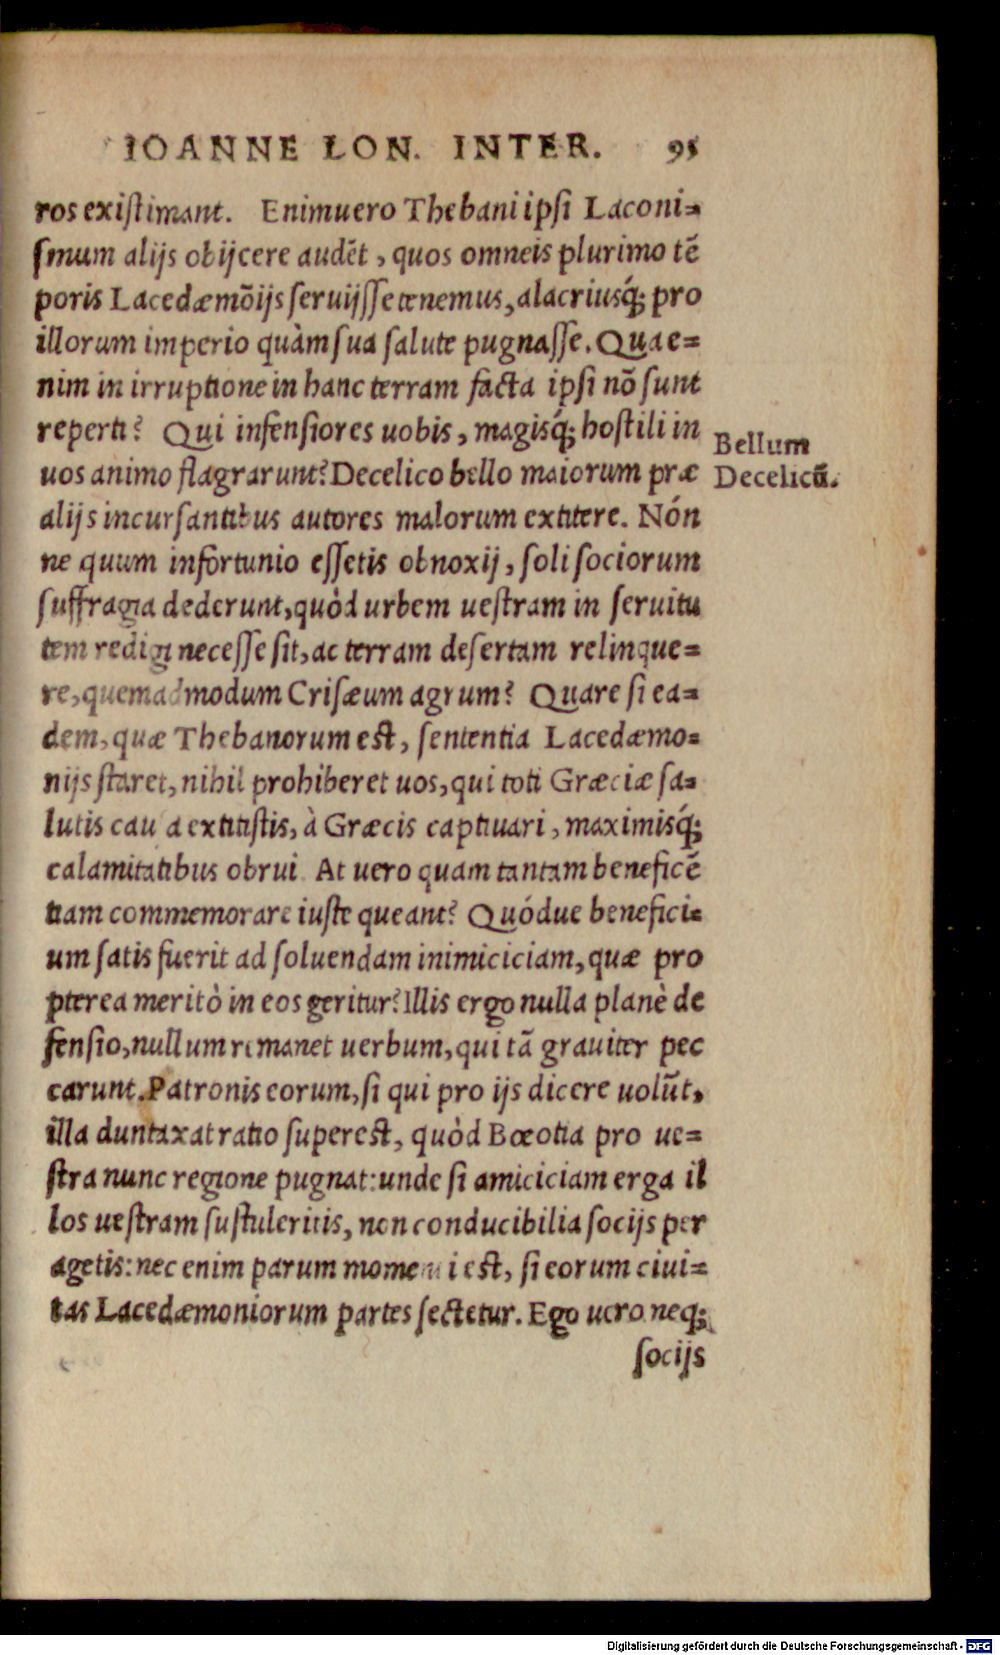 IOANNE LON. INTER. 95
ros existimant. Enimuero Thebani ipsi Laconi=
smum alijs obijcere audẽt, quos omneis plurimo tẽ
poris Lacedæmõijs seruijsse tenemus, alacriusq́; pro
illorum imperio quàm sua salute pugnasse. Quae=
nim in irruptione in hanc terram facta ipsi nõ sunt
reperti? Qui infensiores uobis, magisq́; hostili in
uos animo flagrarunt? Decelico bello maiorum præ
alijs incursantibus autores malorum extitere. Nón
ne quum infortunio essetis obnoxij, soli sociorum
suffragia dederunt, quòd urbem uestram in seruitu
tem redigi necesse sit, ac terram desertam relinque=
re, quemadmodum Crisæum agrum? Quare si ea=
dem, quæ Thebanorum est, sententia Lacedæmo=
nijs staret, nihil prohiberet uos, qui toti Græciæ sa=
lutis cau a extitistis, à Græcis captiuari, maximisq́;
calamitatibus obrui. At uero quam tantam beneficẽ
tiam commemorare iuste queant? Quódue benefici=
um satis fuerit ad soluendam inimiciciam, quæ pro
pterea meritò in eos geritur? Illis ergo nulla planè de
fensio, nullum remanet uerbum, qui tã grauiter pec
carunt. Patronis eorum, si qui pro ijs dicere uolũt,
illa duntaxat ratio superest, quòd Bœotia pro ue=
stra nunc regione pugnat: unde si amiciciam erga il
los uestram sustuleritis, non conducibilia socijs per
agetis: nec enim parum momenti est, si eorum ciui=
tas Lacedæmoniorum partes sectetur. Ego uero neq;
socijs
Bellum
Decelicũ.
Digitalisierung gefördert durch die Deutsche Forschungsgemeinschaft - DFG